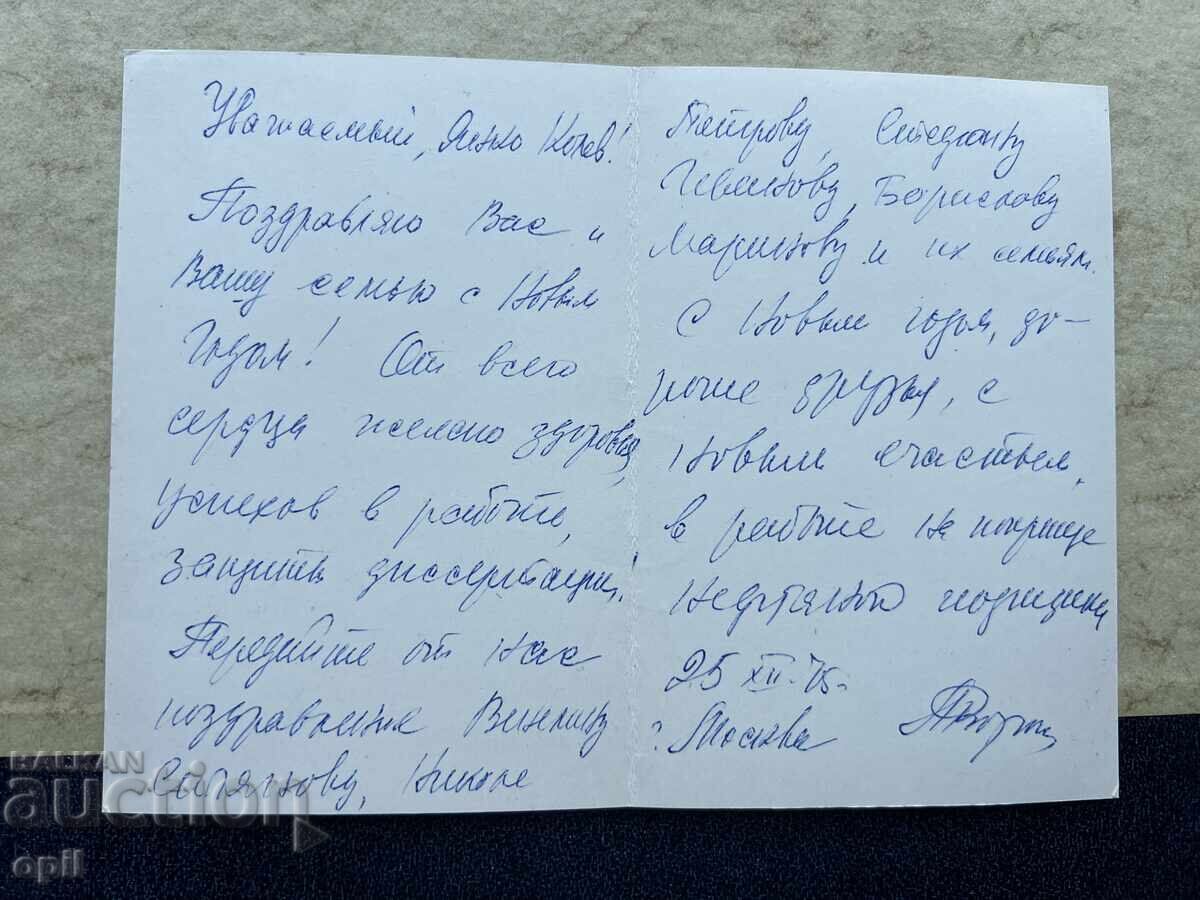 Уважаемый, Янко Колев!
Поздравляю Вас и
Вашу семью с Новым
Годом! От всего
сердца желаю здоровья,
успехов в работе,
защиты диссертации!
Передайте от нас
поздравление
Николе
Петрову, Стефану
Иванову, Борискову
Маринову и их семьям.
С Новым годом, до-
рогие друзья, с
новым счастьем,
в работе на поприще
нефтяной
25 XII-75.
г. Москва
BALKAN
auction
opil